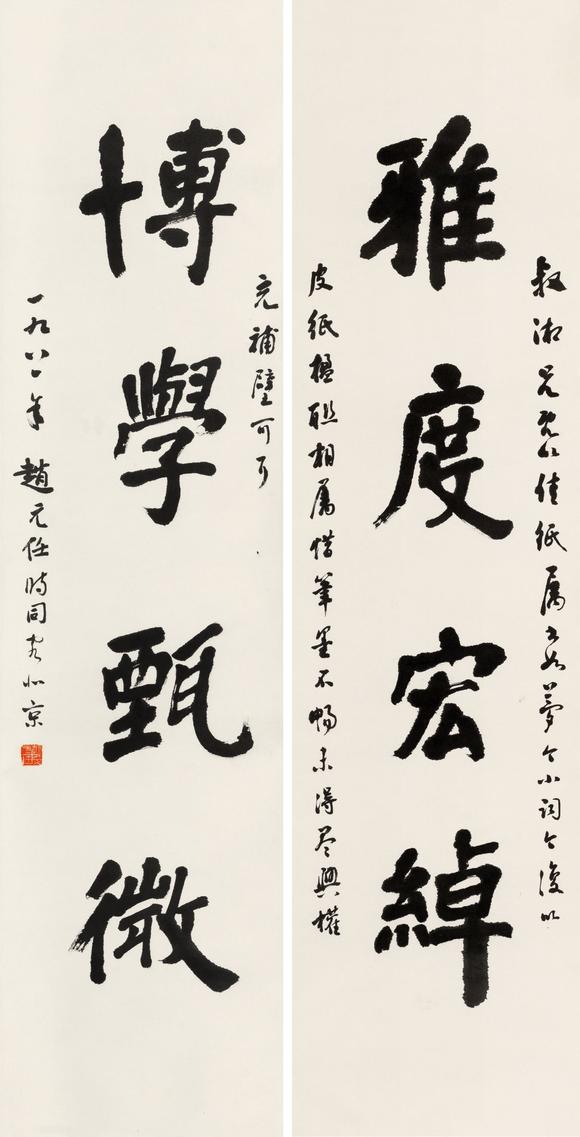 叔湘兄以佳紙属書如夢令小詞今復以
雅度宏綽
皮紙楹聯相属惜筆墨不暢未得尽興權
充補壁可耳
博學甄微
一九八一年 趙元任時同客北京